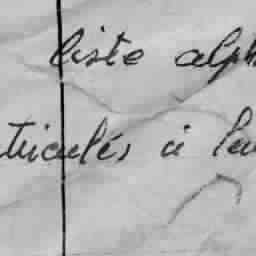 liste alph
triculés à la